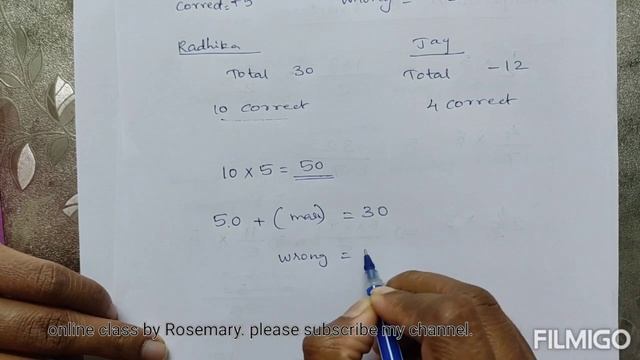 correct = +5 wrong =
Radhika Jay
Total 30 Total -12
10 correct 4 correct
10 × 5 = 50
50 + ( ) = 30
wrong =
online class by Rosemary. please subscribe my channel.
FILMIGO